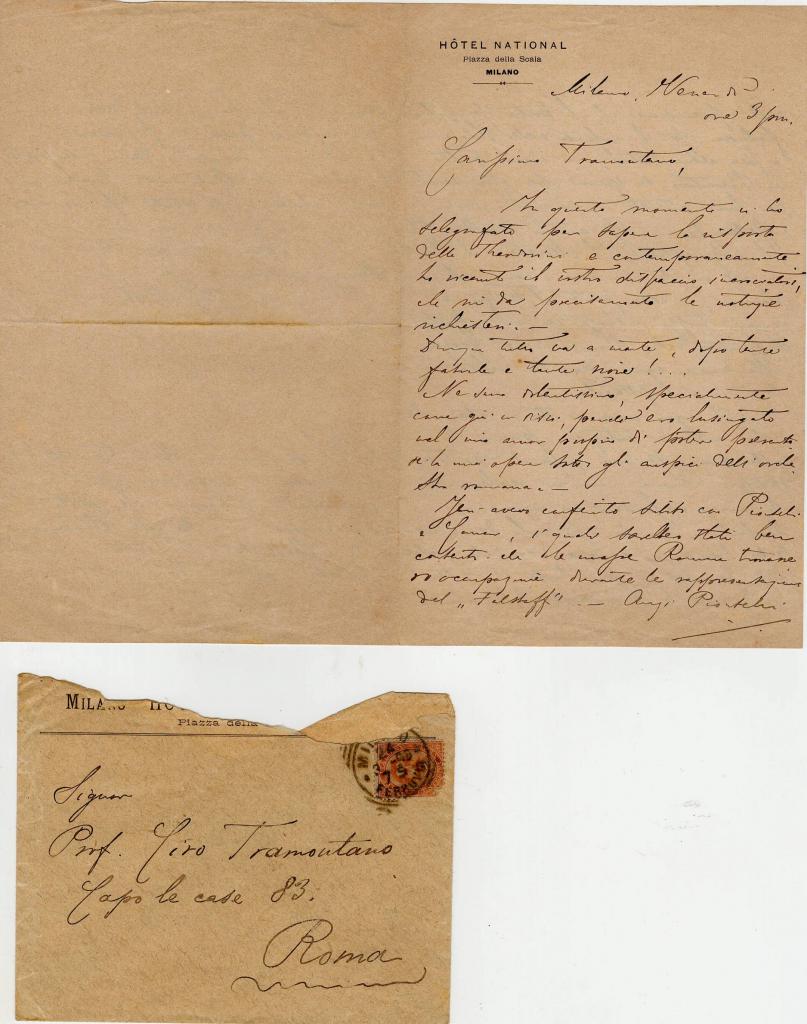 HÔTEL NATIONAL
Piazza della Scala
MILANO
Milano, Venerdì
ore 3 pm.
Carissimo Tramontano,
In questo momento vi ho
telegrafato per sapere la risposta
della Theodorini e contemporaneamente
ho ricevuto il vostro dispaccio
che mi dà precisamente le notizie
richiestevi. —
Dunque tutto va a monte, dopo tante
fatiche e tante noie!...
Ne sono dolentissimo, specialmente
come già vi dissi, perchè ero lusingato
nel mio amor proprio di poter presenta-
re la mia opera sotto gli auspici dell'orche
stra romana. —
Jeri avevo conferito subito con
e i quali sarebbero stati ben
contenti che le masse Romane trovasse
ro occupazione durante le rappresentazioni
del „Falstaff". — Anzi
MILANO
Piazza della
MILANO
24
7 S
FERROVIA
Signor
Prof. Ciro Tramontano
Capo le case 83.
Roma